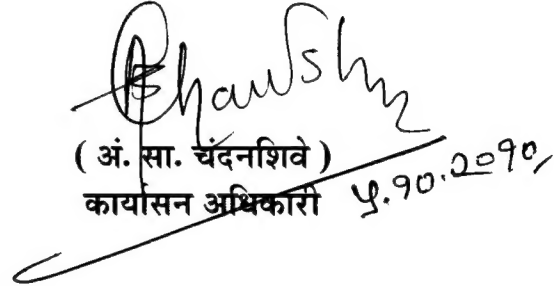 ( अं. सा. चंदनशिवे )
कार्यासन अधिकारी ५.१०.२०१०